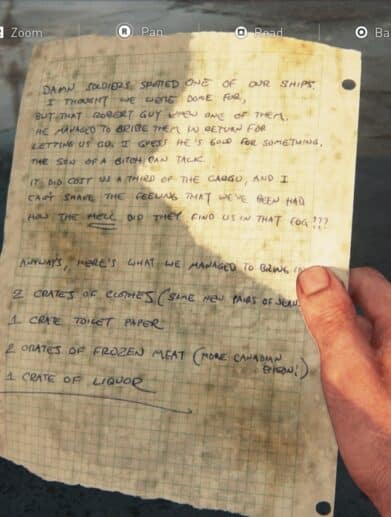 Zoom
R Pan
Read
Ba
DAMN SOLDIERS SPOTTED ONE OF OUR SHIPS.
I THOUGHT WE WERE DONE FOR,
BUT THAT ROBERT GUY KNEW ONE OF THEM.
HE MANAGED TO BRIBE THEM IN RETURN FOR
LETTING US GO. I GUESS HE'S GOOD FOR SOMETHING.
THE SON OF A BITCH CAN TALK.
IT DID COST US A THIRD OF THE CARGO, AND I
CAN'T SHAKE THE FEELING THAT WE'VE BEEN HAD
HOW THE HELL DID THEY FIND US IN THAT FOG???
ANYWAYS, HERE'S WHAT WE MANAGED TO BRING IN
2 CRATES OF CLOTHES (SOME NEW PAIRS OF JEAN
1 CRATE TOILET PAPER
2 CRATES OF FROZEN MEAT (MORE CANADIAN
BISON!)
1 CRATE OF LIQUOR